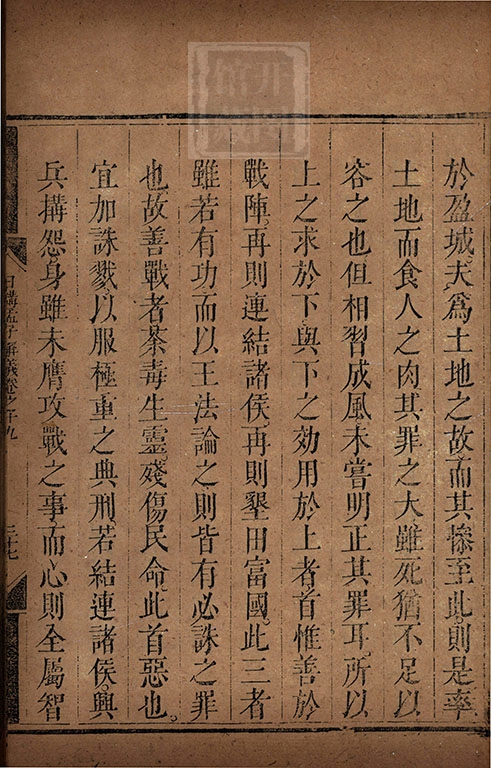 於盈城夫爲土地之故而其慘至此則是率
土地而食人之肉其罪之大雖死猶不足以
容之也但相習成風未嘗明正其罪耳所以
上之求於下與下之効用於上者首惟善於
戰陣再則連結諸侯再則墾田富國此三者
雖若有功而以王法論之則皆有必誅之罪
也故善戰者荼毒生靈殘傷民命此首惡也
宜加誅戮以服極重之典刑若結連諸侯興
兵搆怨身雖未膺攻戰之事而心則全屬智
日講孟子解義卷之十九
三十七
館藏